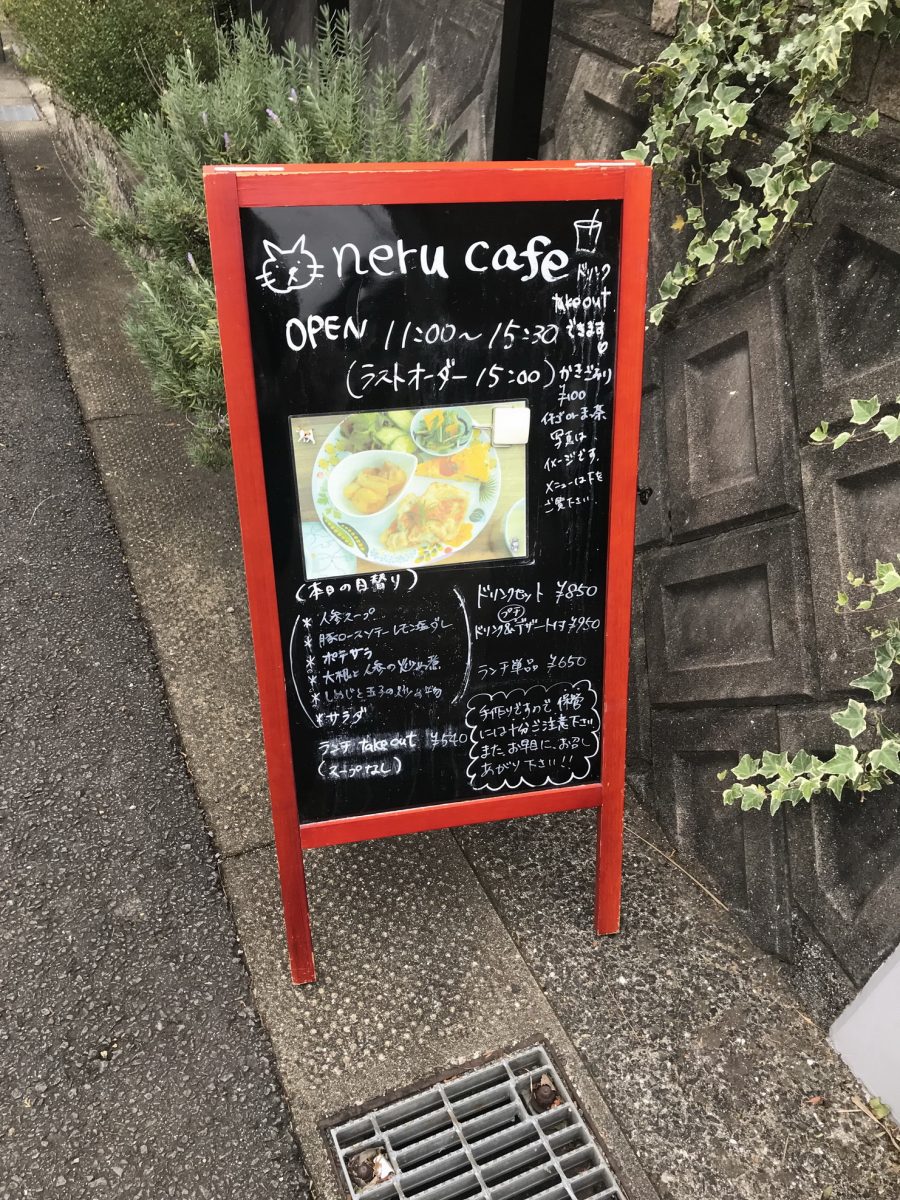 neru cafe
OPEN 11:00～15:30
(ラストオーダー 15:00)
ドリンク
take out
できます♡
かき氷
¥100
写真は、
イメージです。
メニューは下を
ご覧下さい。
(本日の日替り)
* 人参スープ
* 豚ロースソテー レモン塩ダレ
* ポテサラ
* 大根と人参の炒め煮
* しめじと玉子の炒め物
* サラダ
ランチ take out ¥540
(スープなし)
ドリンクセット ¥850
プチ
ドリンク&デザート付 ¥950
ランチ単品 ¥650
手作りですので 保管
には十分ご注意下さい
また、お早目に、お召し
あがり下さい!!